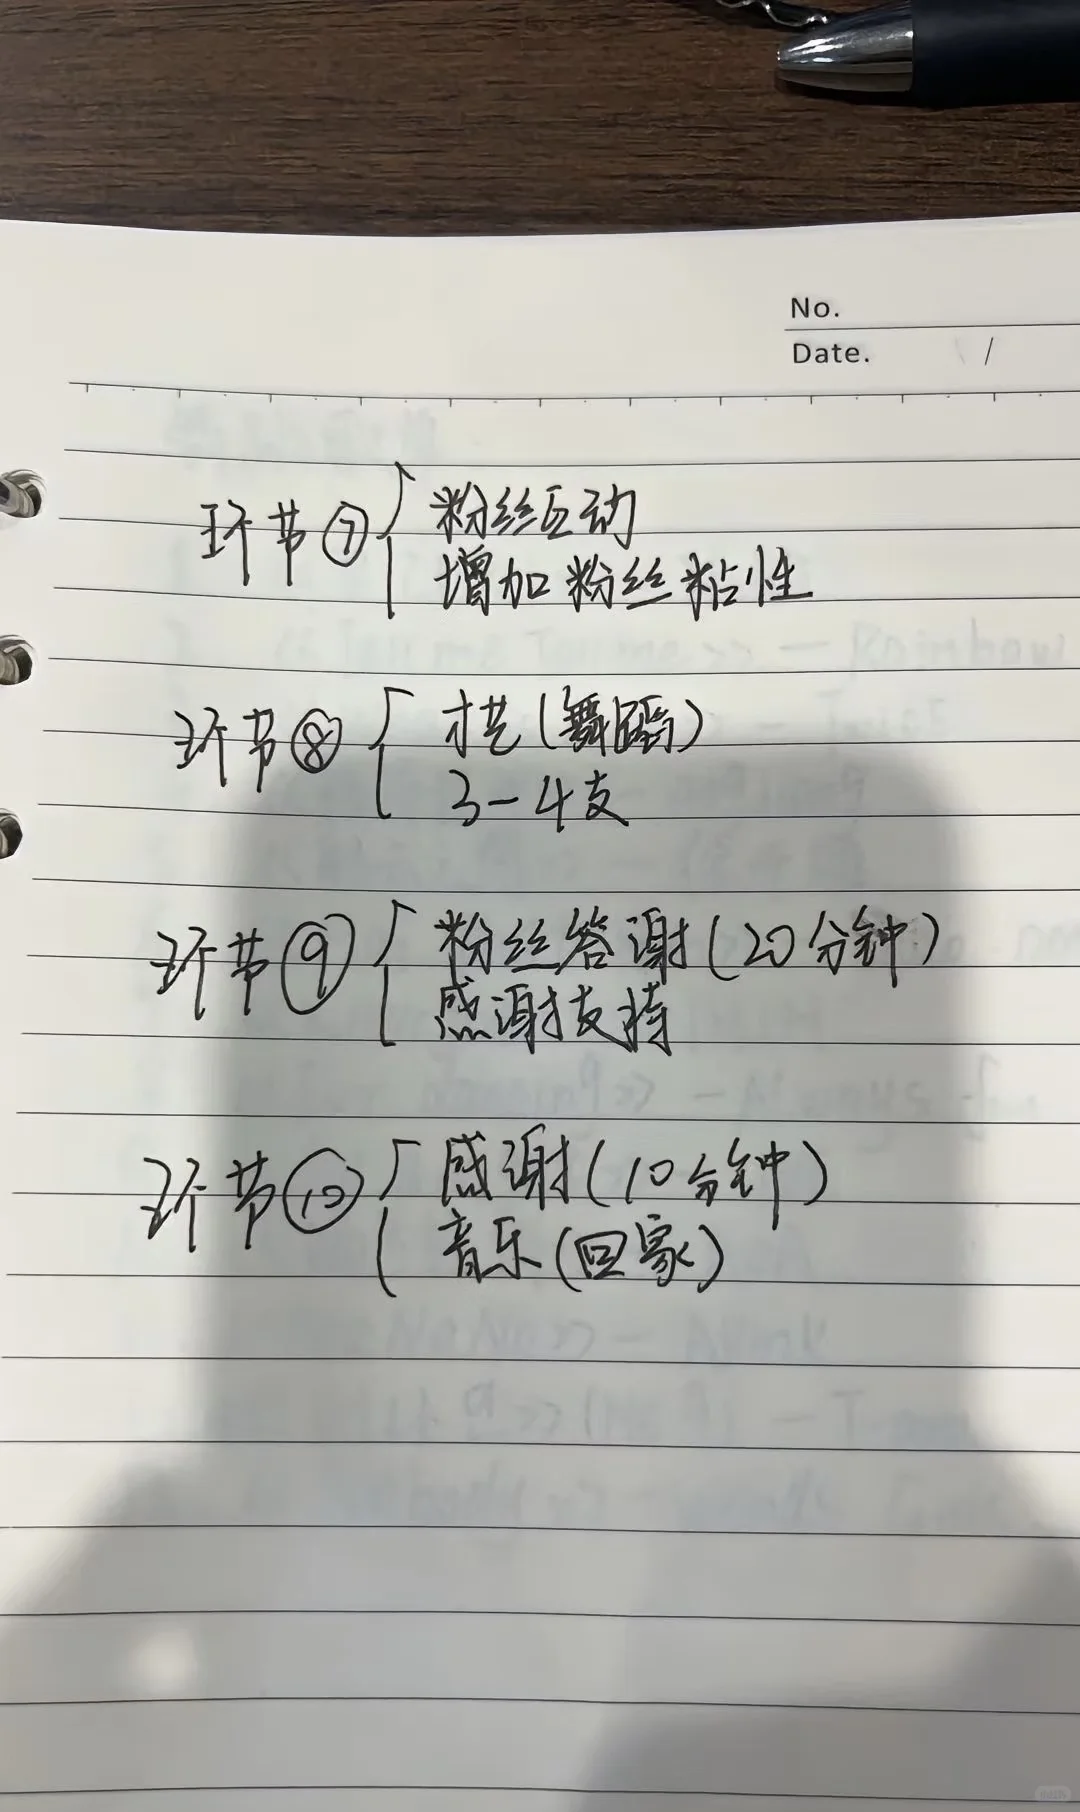 No.
Date. /
环节⑦ 粉丝互动
增加粉丝粘性
环节⑧ 才艺(舞蹈)
3-4支
环节⑨ 粉丝答谢(20分钟)
感谢支持
环节⑩ 感谢(10分钟)
音乐(回家)